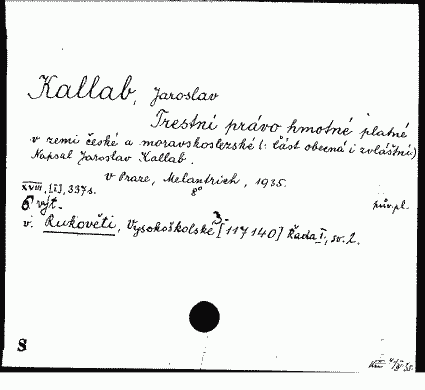 Kallab, Jaroslav
Trestní právo hmotné platné
v zemi české a moravskoslezské (: část obecná i zvláštní:)
Napsal Jaroslav Kallab.
v Praze, Melantrich, 1935.
XVIII, [I], 337 s. 8°
6 výt. pův. pl.
v. Rukověti, Vysokoškolské [117140] Řada I, sv. 2.
3.
S